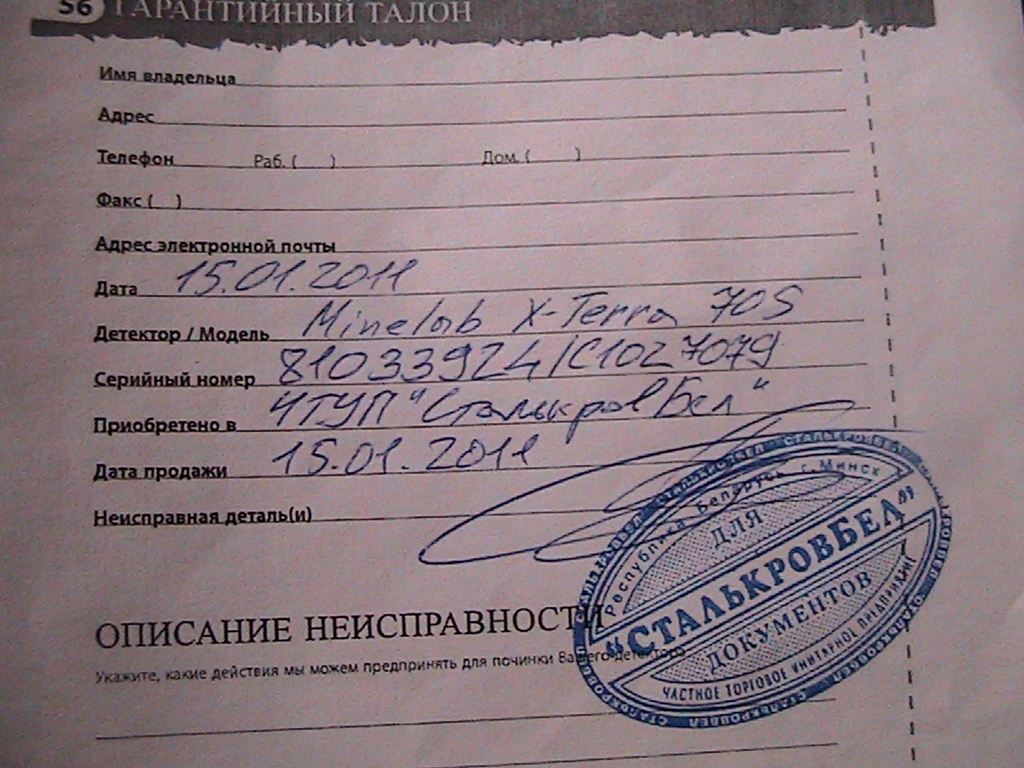 56 ГАРАНТИЙНЫЙ ТАЛОН
Имя владельца
Адрес
Телефон Раб. ( ) Дом. ( )
Факс ( )
Адрес электронной почты
Дата 15.01.2011
Детектор / Модель Minelab X-Terra 705
Серийный номер 81033924/C1027079
Приобретено в ЧТУП "СталькровБел"
Дата продажи 15.01.2011
Неисправная деталь(и)
Республика Беларусь г. Минск
ДЛЯ
"СТАЛЬКРОВБЕЛ"
ДОКУМЕНТОВ
ЧАСТНОЕ ТОРГОВОЕ УНИТАРНОЕ ПРЕДПРИЯТИЕ
ОПИСАНИЕ НЕИСПРАВНОСТИ
Укажите, какие действия мы можем предпринять для починки Вашего детектора